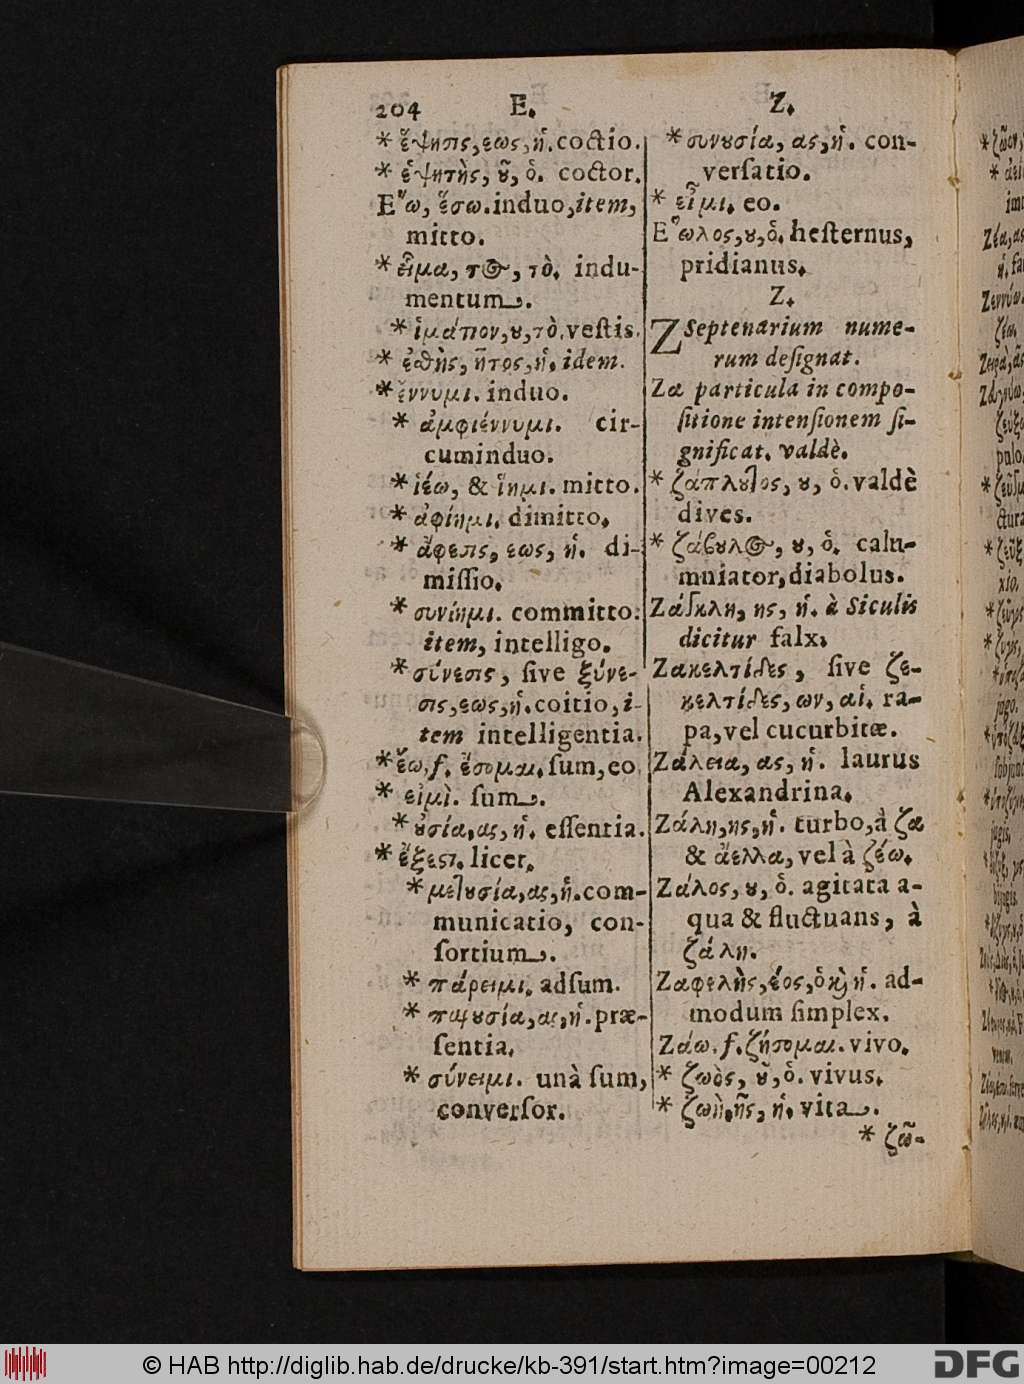 204 E. Z.
* ἕψησις, εως, ἡ. coctio.
* ἑψητὴς, οῦ, ὁ. coctor.
Ἕω, ἕσω. induo, item,
mitto.
* εἷμα, τος, τὸ. indu-
mentum.
* ἱμάτιον, ου, τὸ. vestis.
* ἐσθὴς, ῆτος, ἡ. idem.
* ἕννυμι. induo.
* ἀμφιέννυμι. cir-
cuminduo.
* ἱέω, & ἵημι. mitto.
* ἀφίημι. dimitto.
* ἄφεσις, εως, ἡ. di-
missio.
* συνίημι. committo:
item, intelligo.
* σύνεσις, sive ξύνε-
σις, εως, ἡ. coitio, i-
tem intelligentia.
* ἔω. f. ἔσομαι. sum, eo
* εἰμὶ. sum.
* οὐσία, ας, ἡ. essentia.
* ἔξεστι. licet.
* μετουσία, ας, ἡ. com-
municatio, con-
sortium.
* πάρειμι. adsum.
* παρουσία, ας, ἡ. præ-
sentia.
* σύνειμι. unà sum,
conversor.
* συνουσία, ας, ἡ. con-
versatio.
* εἶμι. eo.
Ἕωλος, ου, ὁ. hesternus,
pridianus.
Z.
Z Septenarium nume-
rum designat.
Ζα particula in compo-
sitione intensionem si-
gnificat. valdè.
* ζάπλουτος, ου, ὁ. valdè
dives.
* ζάβουλος, ου, ὁ. calu-
mniator, diabolus.
Ζάγκλη, ης, ἡ. à Siculis
dicitur falx.
Ζακελτίδες, sive ζε-
κελτίδες, ων, αἱ. ra-
pa, vel cucurbitæ.
Ζάλεια, ας, ἡ. laurus
Alexandrina.
Ζάλη, ης, ἡ. turbo, à ζα
& ἄελλα, vel à ζέω.
Ζάλος, ου, ὁ. agitata a-
qua & fluctuans, à
ζάλη.
Ζαφελὴς, έος, ὁ καὶ ἡ. ad-
modum simplex.
Ζάω. f. ζήσομαι. vivo.
* ζωὸς, οῦ, ὁ. vivus.
* ζωὴ, ῆς, ἡ. vita.
* ζῶ-
© HAB http://diglib.hab.de/drucke/kb-391/start.htm?image=00212
DFG